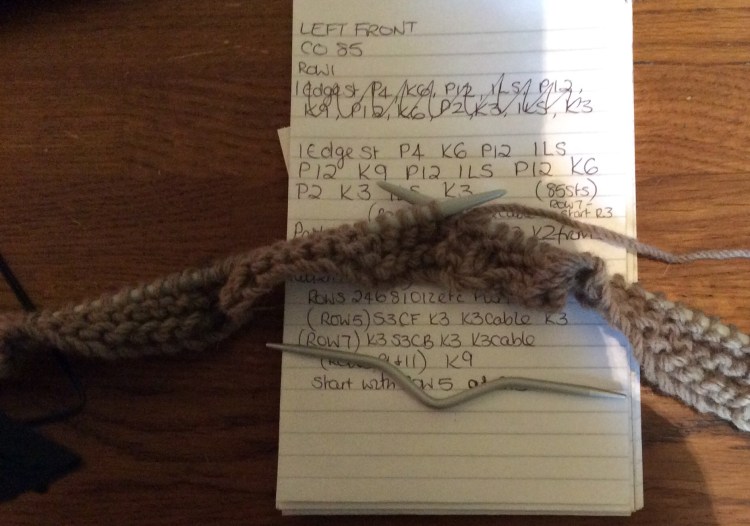 LEFT FRONT
CO 85
ROW1
1Edge st P4 K6, P12, 1LS, P12,
K9, P12, K6, P2, K3, 1LS, K3
1Edge St P4 K6 P12 1LS
P12 K9 P12 1LS P12 K6
P2 K3 K3 (85sts)
ROW7-
start R3
K2from
Rows 24681012etc
(ROW5) S3CF K3 K3Cable K3
(ROW7) K3 S3CB K3 K3cable
K9
Start with ROW5